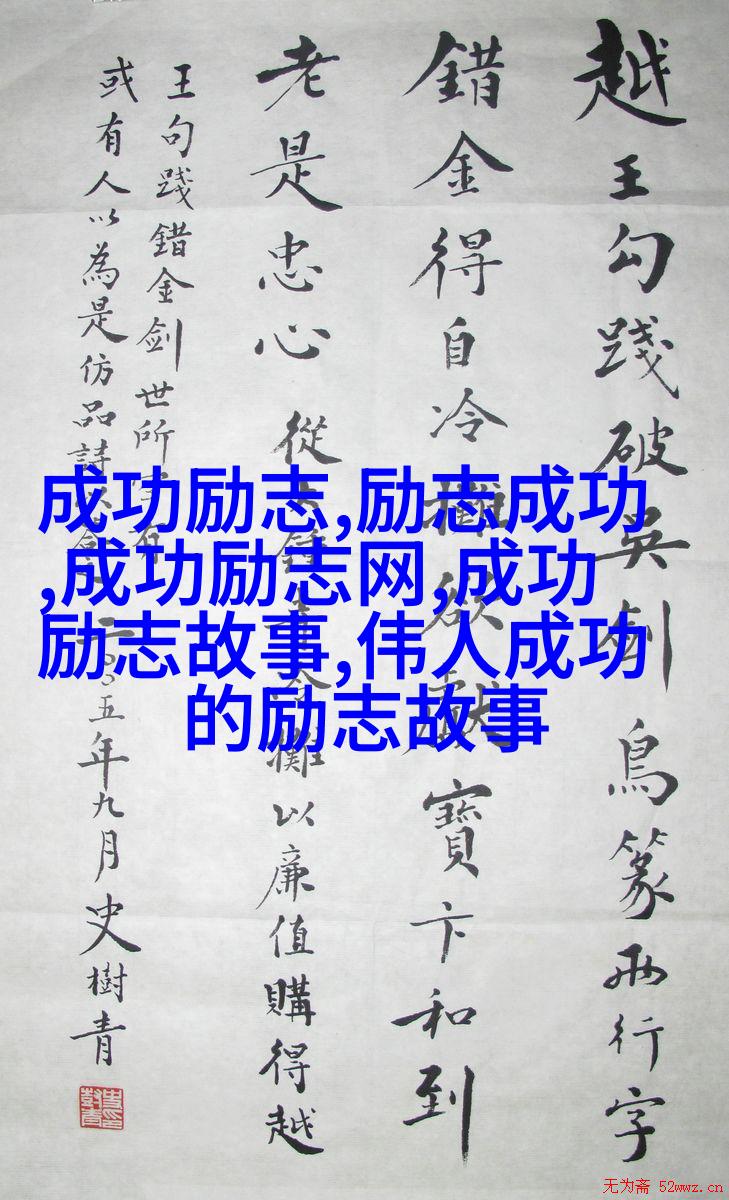 越王勾踐破吳劍鳥篆兩行字
錯金得自冷攤欲獻寶卞和到
老是忠心 從大鐘寺冷攤以廉值購得越
王句踐錯金劍世所有
或有人以為是仿品詩以二〇〇五年九月史樹青
成功励志,励志成功
,成功励志网,成功
励志故事,伟人成功
的励志故事
无为斋 52wwz.cn